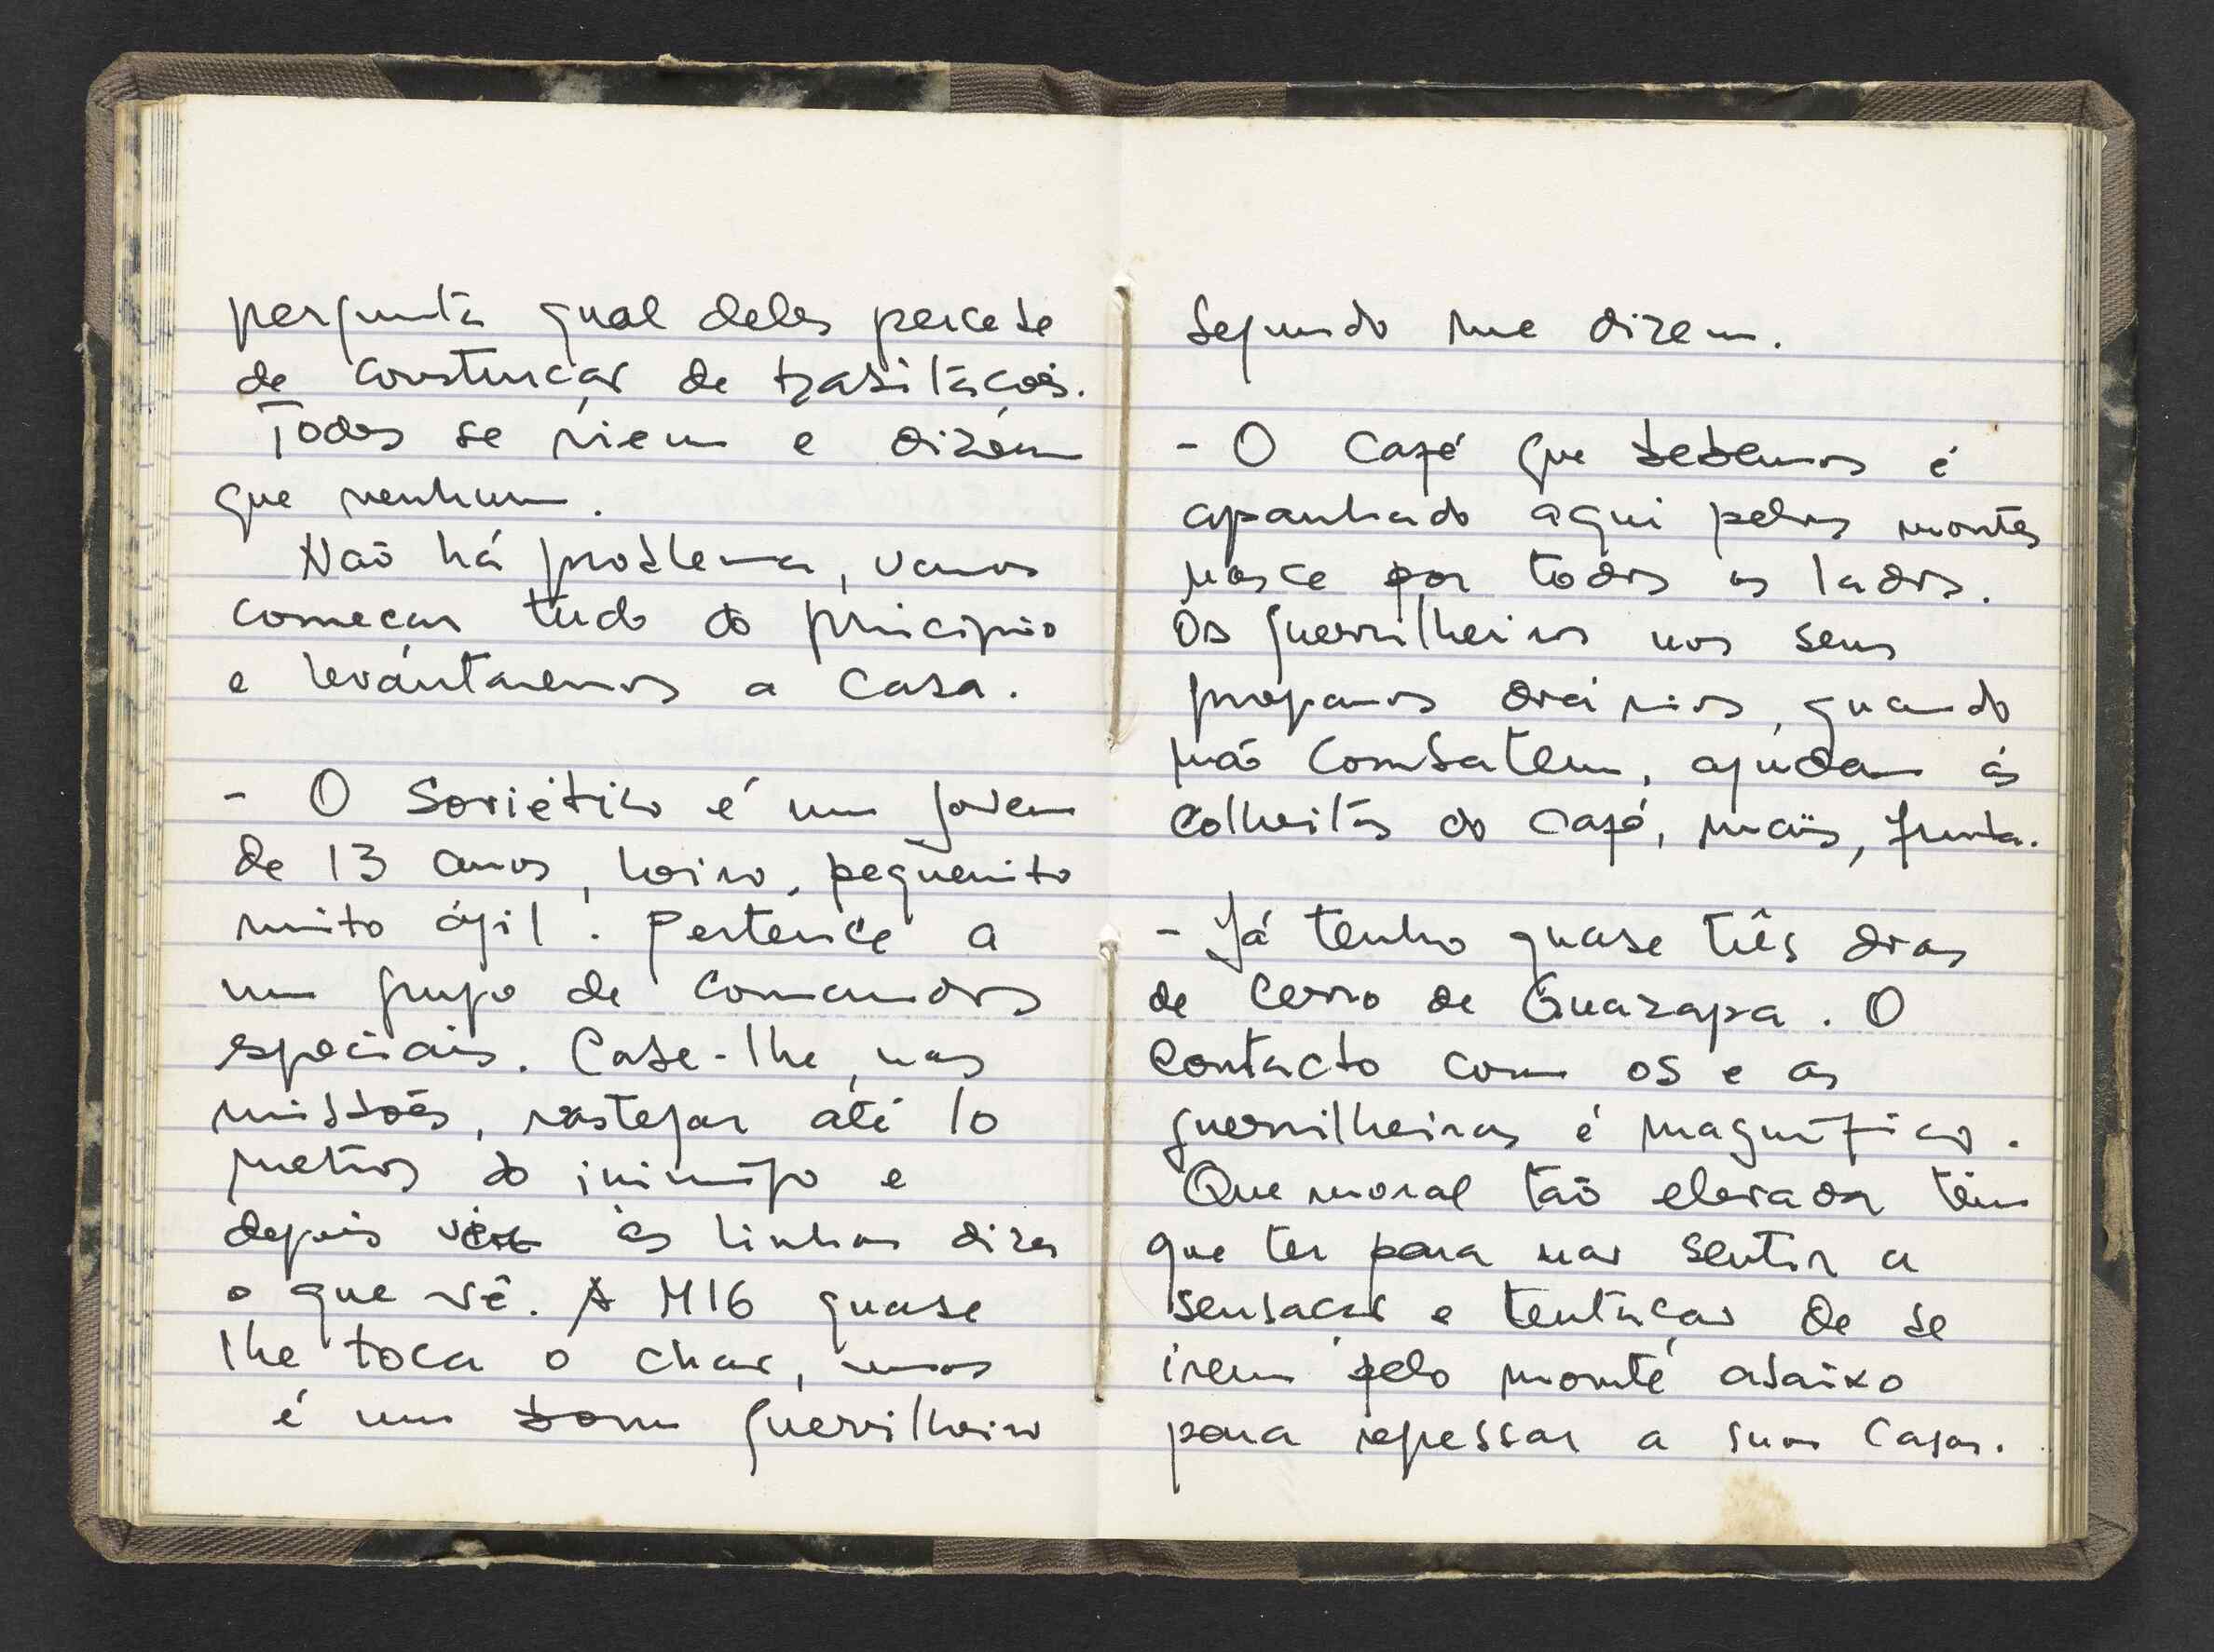 pergunta qual deles percebe
de construção de habitações.
Todos se riem e dizem
que nenhum.
Não há problema, vamos
começar tudo do princípio
e levantaremos a casa.
- O Soviético é um jovem
de 13 anos, loiro, pequenito
muito ágil. Pertence a
um grupo de comandos
especiais. Cabe-lhe, nas
missões, rastejar até 10
metros do inimigo e
depois às linhas dizer
o que vê. A M16 quase
lhe toca o chão, mas
é um bom guerrilheiro
segundo me dizem.
- O café que bebemos é
apanhado aqui pelos montes
nasce por todos os lados.
Os guerrilheiros nos seus
programas diários, quando
não combatem, ajudam às
colheitas do café, maïs, fruta.
- Já tenho quase três dias
de Cerro de Guazapa. O
contacto com os e as
guerrilheiras é magnífico.
Que moral tão elevada têm
que ter para não sentir a
sensação e tentação de se
irem pelo monte abaixo
para regressar a suas casas.